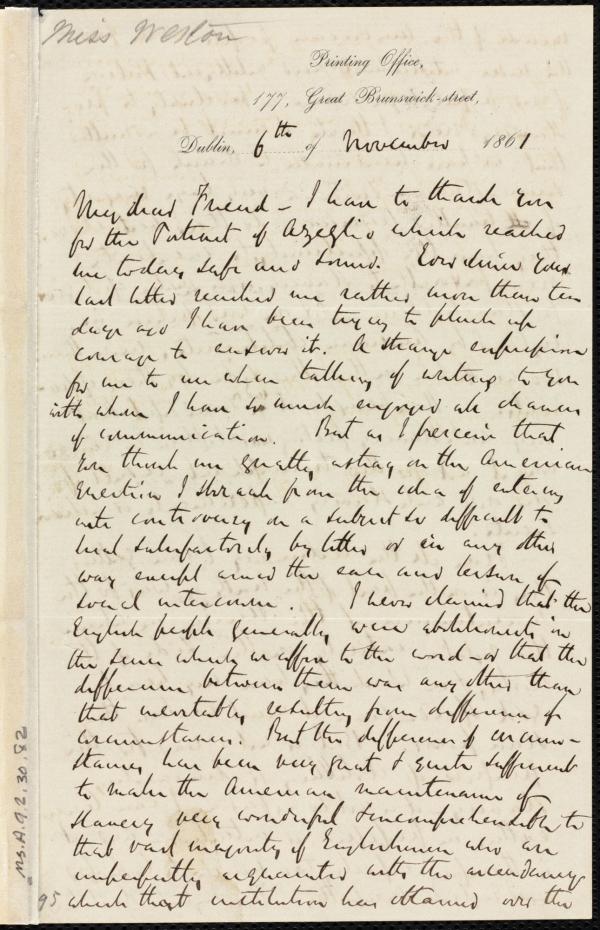 Miss Weston
Printing Office,
177, Great Brunswick-street,
Dublin, 6th of November 1861
My dear Friend – I have to thank you
for the Portrait of Azeglio which reached
me today safe and sound. Ever since your
last letter reached me rather more than ten
days ago I have been trying to pluck up
courage to answer it. A strange expression
for me to use when talking of writing to you
with whom I have so much enjoyed all chances
of communication. But as I perceive that
you think me greatly astray on the American
question I shrink from the idea of entering
into controversy on a subject so difficult to
treat satisfactorily by letter or in any other
way except amid the ease and leisure of
social intercourse. I never claimed that the
English people generally were abolitionists in
the sense which we affix to the word – or that the
difference between them was any other than
that inevitably resulting from difference of
circumstances. But the difference of circum-
stances has been very great & quite sufficient
to make the American maintenance of
slavery very wonderful & incomprehensible to
that vast majority of Englishmen who are
imperfectly acquainted with the ascendancy
which that institution has obtained over the
95
Ms.A.9.2.30.82